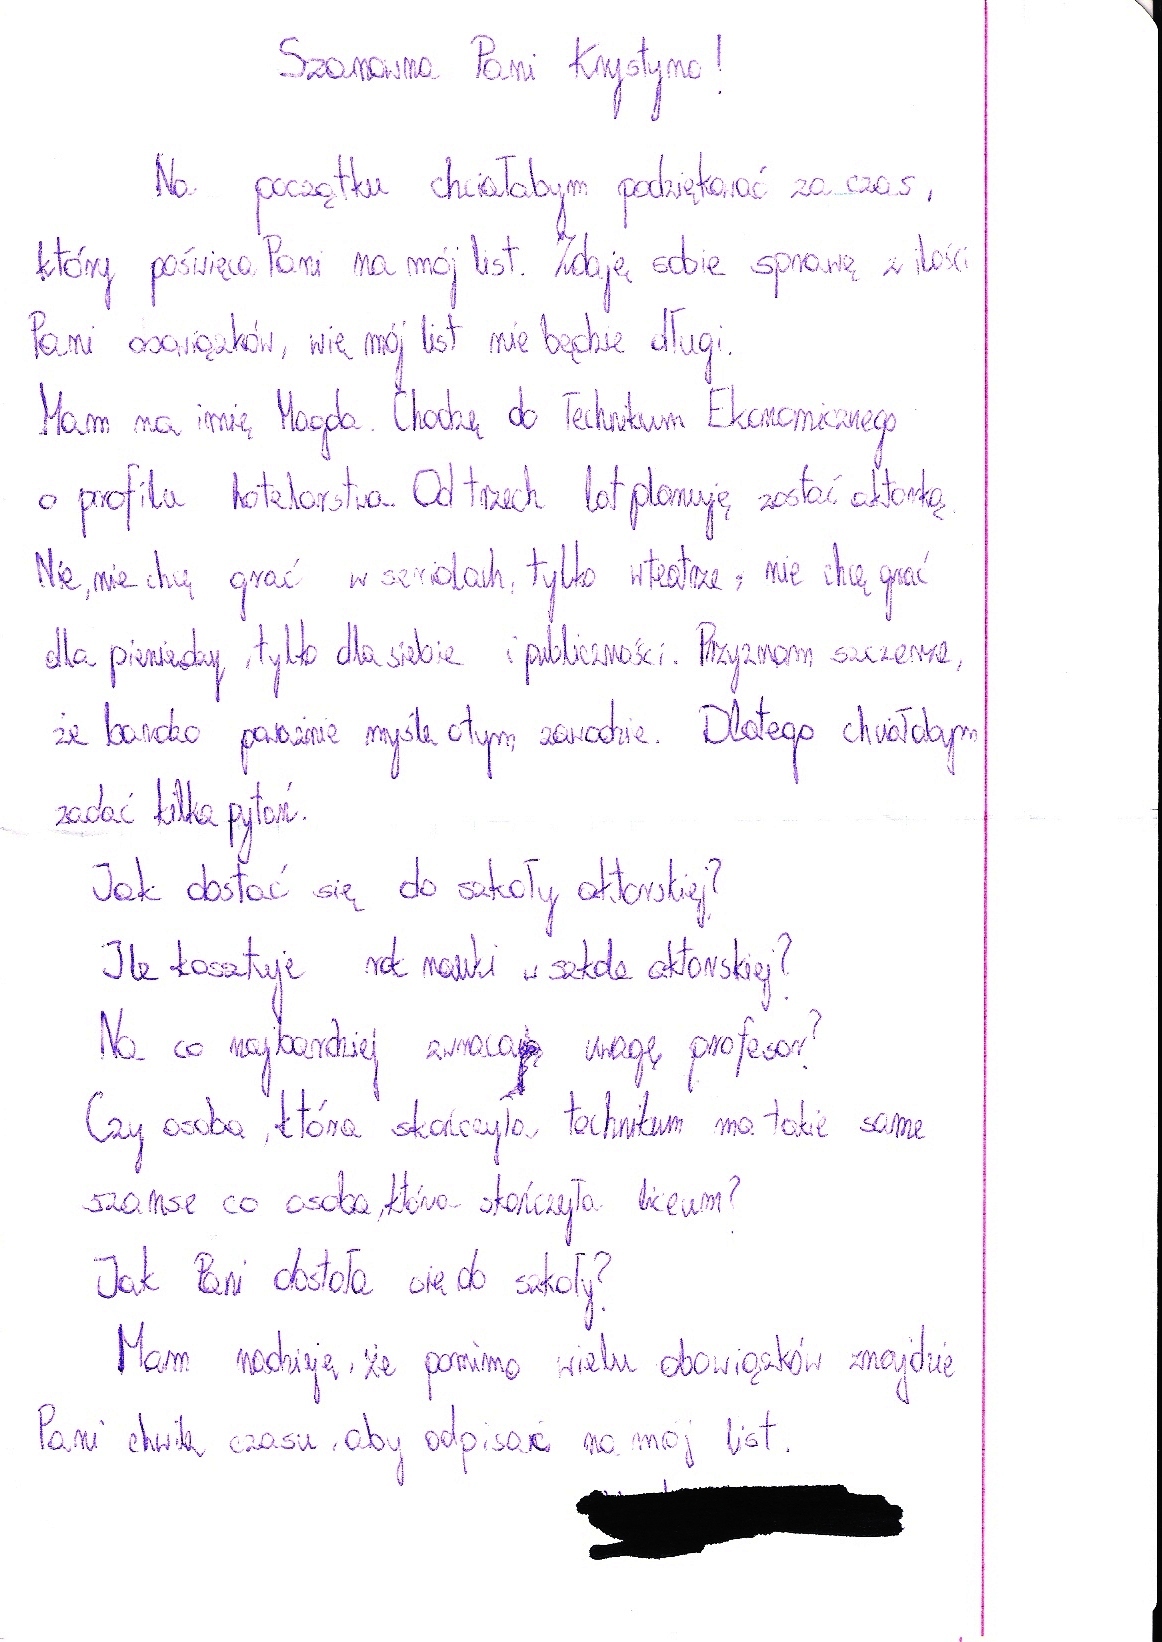 Szanowna Pani Krystyno!
Na początku chciałabym podziękować za czas,
który poświęca Pani na mój list. Zdaję sobie sprawę z ilości
Pani obowiązków, wię mój list nie będzie długi.
Mam na imię Magda. Chodzę do Technikum Ekonomicznego
o profilu hotelarstwa. Od trzech lat planuję zostać aktorką.
Nie, nie chcę grać w serialach, tylko w teatrze, nie chcę grać
dla pieniędzy, tylko dla siebie i publiczności. Przyznam szczerze,
że bardzo poważnie myślę o tym zawodzie. Dlatego chciałabym
zadać kilka pytań.
Jak dostać się do szkoły aktorskiej?
Ile kosztuje rok nauki w szkole aktorskiej?
Na co najbardziej zwraca uwagę profesor?
Czy osoba, która skończyła technikum ma takie same
szanse co osoba, która skończyła liceum?
Jak Pani dostała się do szkoły?
Mam nadzieję, że pomimo wielu obowiązków znajdzie
Pani chwilę czasu, aby odpisać na mój list.